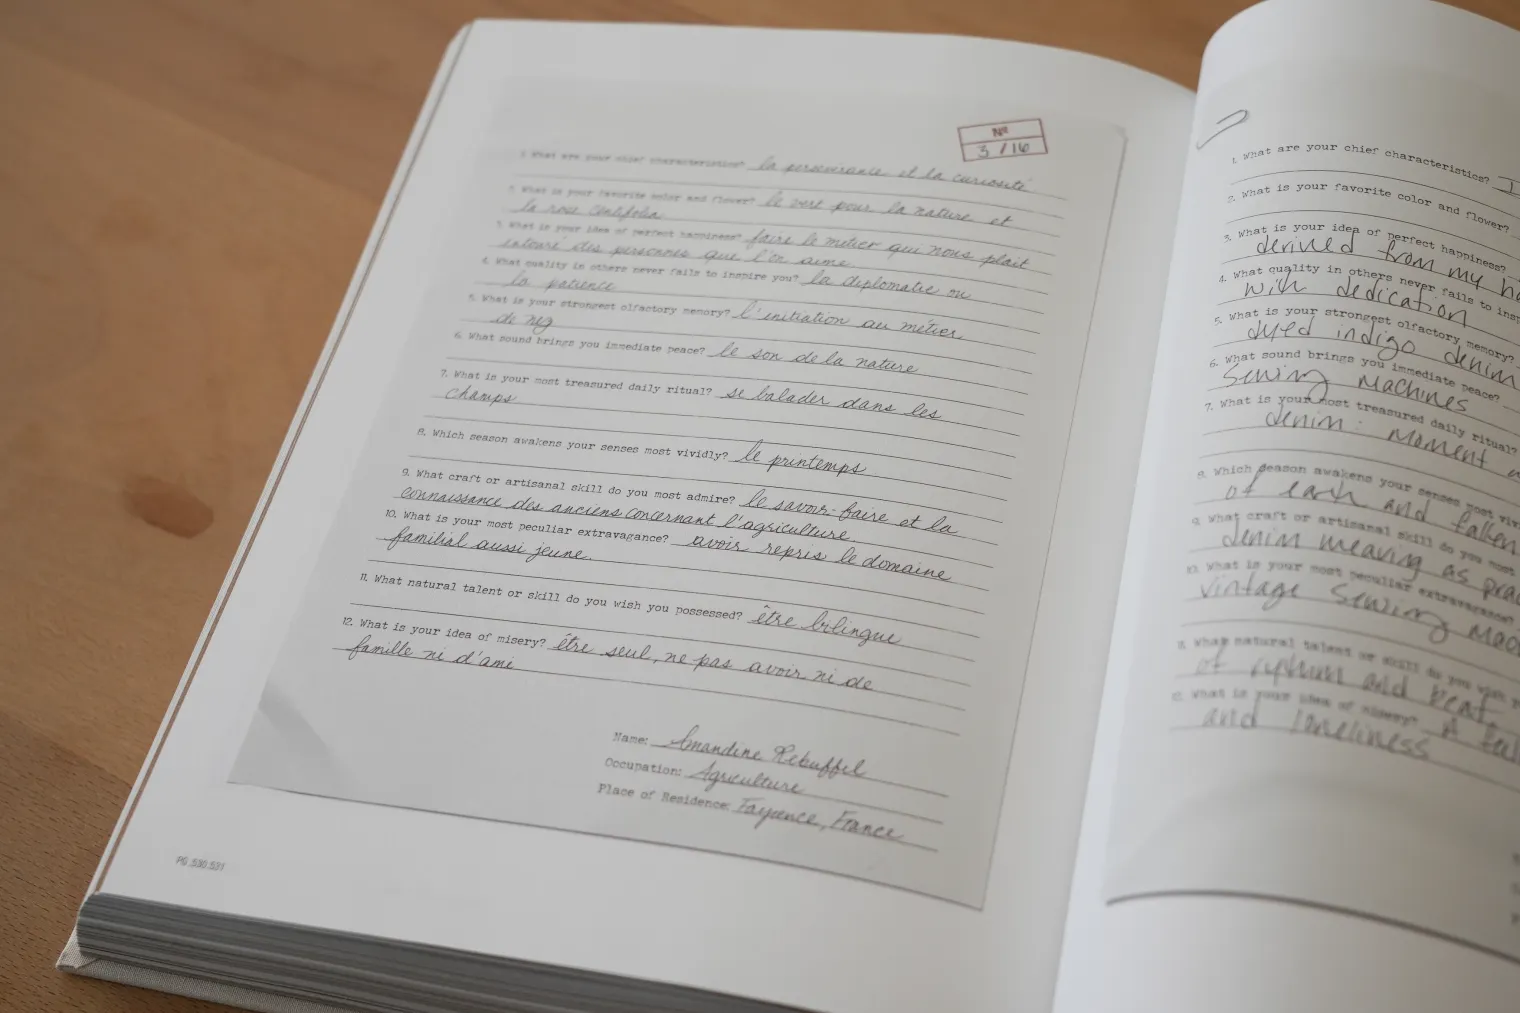 Nº
3 / 16
1. What are your chief characteristics? la perseverance et la curiosité
2. What is your favorite color and flower? le vert pour la nature et
la rose centifolia
3. What is your idea of perfect happiness? faire le métier qui nous plait
entouré des personnes que l'on aime
4. What quality in others never fails to inspire you? la diplomatie ou
la patience
5. What is your strongest olfactory memory? l'initiation au métier
de nez
6. What sound brings you immediate peace? le son de la nature
7. What is your most treasured daily ritual? se balader dans les
champs
8. Which season awakens your senses most vividly? le printemps
9. What craft or artisanal skill do you most admire? le savoir-faire et la
connaissance des anciens concernant l'agriculture.
10. What is your most peculiar extravagance? avoir repris le domaine
familial aussi jeune.
11. What natural talent or skill do you wish you possessed? être bilingue
12. What is your idea of misery? être seul, ne pas avoir ni de
famille ni d'ami
Name: Amandine Rebuffel
Occupation: Agriculture
Place of Residence: Fayence, France
PG.530.531
1. What are your chief characteristics?
2. What is your favorite color and flower?
3. What is your idea of perfect happiness?
derived from my
4. What quality in others never fails to
with dedication
5. What is your strongest olfactory memory?
dyed indigo denim
6. What sound brings you immediate peace?
Sewing Machines
7. What is your most treasured daily ritual?
denim: moment
8. Which season awakens your senses most
of each and fallen
9. What craft or artisanal skill do you most
denim weaving as
10. What is your most peculiar extravagance?
vintage sewing
11. What natural talent or skill do you wish
of rythum and beat
12. What is your idea of misery? A
and loneliness